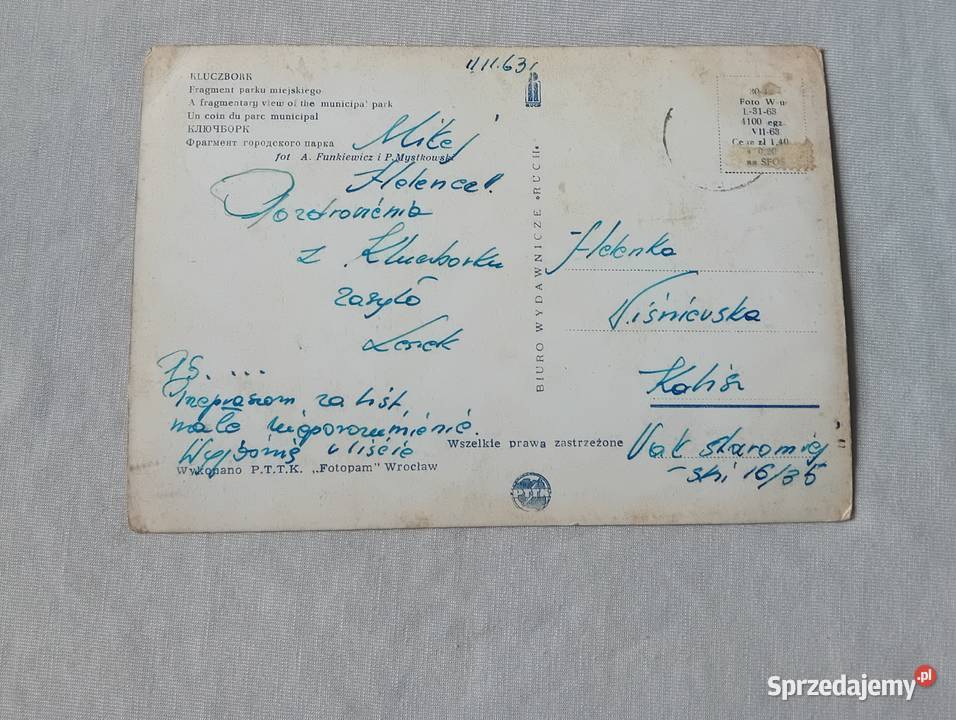 11.11.63r
KLUCZBORK
Fragment parku miejskiego
A fragmentary view of the municipal park
Un coin du parc municipal
КЛЮЧБОРК
Фрагмент городского парка
fot A. Funkiewicz i P. Mystkowski
Miłej
Helence!
Pozdrowienia
z Kluczborku
zasyła
Leszek
PS. ...
Przepraszam za list,
małe nieporozumienie.
Wyjaśnię w liście
Wykonano P.T.T.K. „Fotopam" Wrocław
RUCH
BIURO WYDAWNICZE «RUCH»
Wszelkie prawa zastrzeżone
PTTK
Foto W-w
L-31-63
4100 egz.
VII-63
Cena zł 1,40
0,20
na SFOS
Helenka
Wiśniewska
Kalisz
Wał staromiej
-ski 16/35
Sprzedajemy.pl